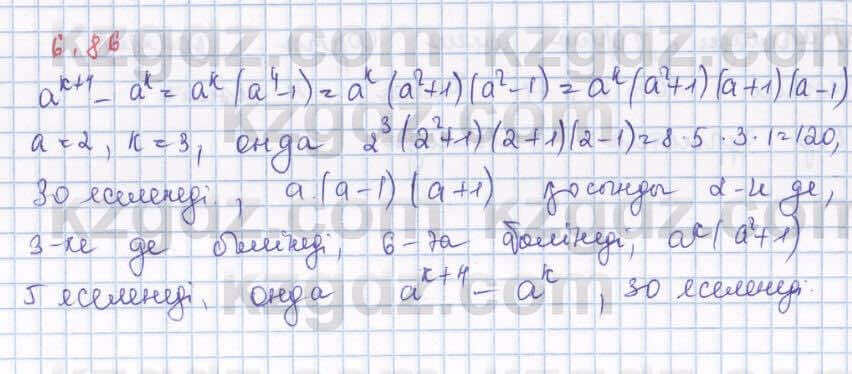 6.86
a^(k+4) - a^k = a^k (a^4-1) = a^k (a²+1) (a²-1) = a^k (a²+1) (a+1) (a-1)
a=2, k=3, онда 2³(2²+1)(2+1)(2-1)=8·5·3·1=120,
30 еселенеді, a(a-1)(a+1) қосынды 2-ге де,
3-ке де бөлінеді, 6-ға бөлінеді, a^k(a²+1)
5 еселенеді, онда a^(k+4) - a^k, 30 еселенеді.
kzgdz.com